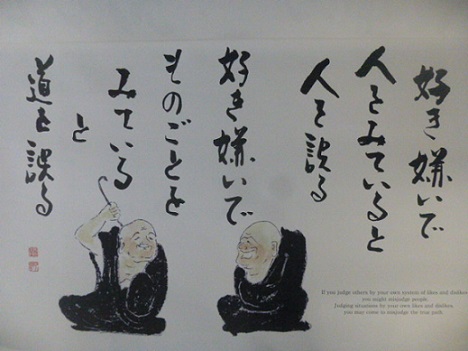 好き嫌いで
人をみていると
人を誤る
好き嫌いで
ものごとを
みている
と
道を誤る
If you judge others by your own system of likes and dislikes,
you might misjudge people.
Judging situations by your own likes and dislikes,
you may come to misjudge the true path.